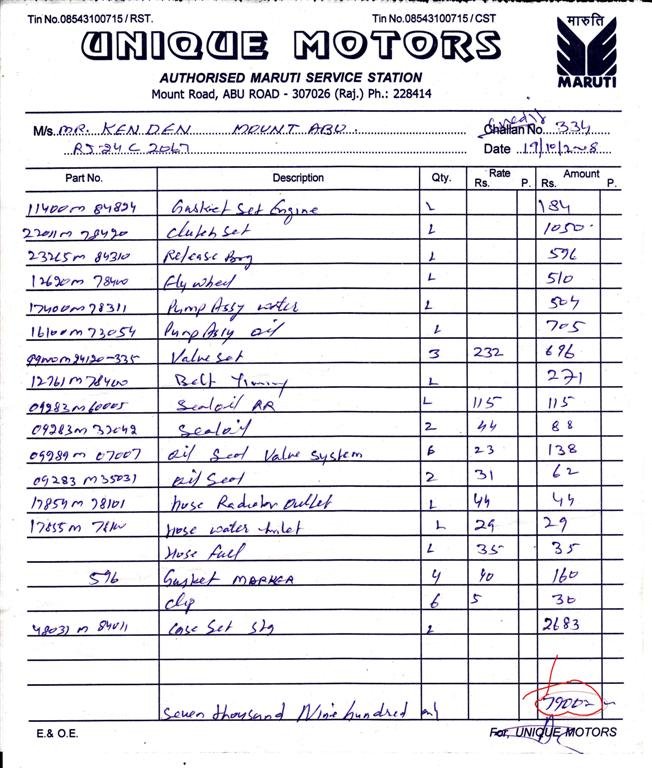 Tin No.08543100715 / RST. Tin No.08543100715 / CST
UNIQUE MOTORS
मारुति
MARUTI
AUTHORISED MARUTI SERVICE STATION
Mount Road, ABU ROAD - 307026 (Raj.) Ph.: 228414
M/s MR. KEN DEN MOUNT ABU. Credit Challan No. 334
RJ-24 C 2067 Date 17/10/2008
Part No. Description Qty. Rate Rs. P. Amount Rs. P.
11400M 84824 Gasket Set Engine 1 184
22011M 78420 Clutch Set 1 1050
23265M 84310 Release Brg 1 596
12620M 78400 Fly wheel 1 510
17400M 78311 Pump Assy water 1 504
16100M 73054 Pump Assy oil 1 705
99000M24120-335 Valve Set 3 232 696
12761M 78400 Belt Timing 1 271
09283M60005 Seal oil RR 1 115 115
09283M 32042 Seal oil 2 44 88
09289M 07007 Oil Seal Valve System 6 23 138
09283 M35031 Oil Seal 2 31 62
17854M 78101 Hose Radiator outlet 1 44 44
17855M Hose water Inlet 1 29 29
Hose fuel 1 35 35
596 Gasket 4 40 160
Clip 6 5 30
48031 M 84011 Case Set Stg 1 2683
seven thousand Nine hundred only 7900
E.& O.E. For, UNIQUE MOTORS